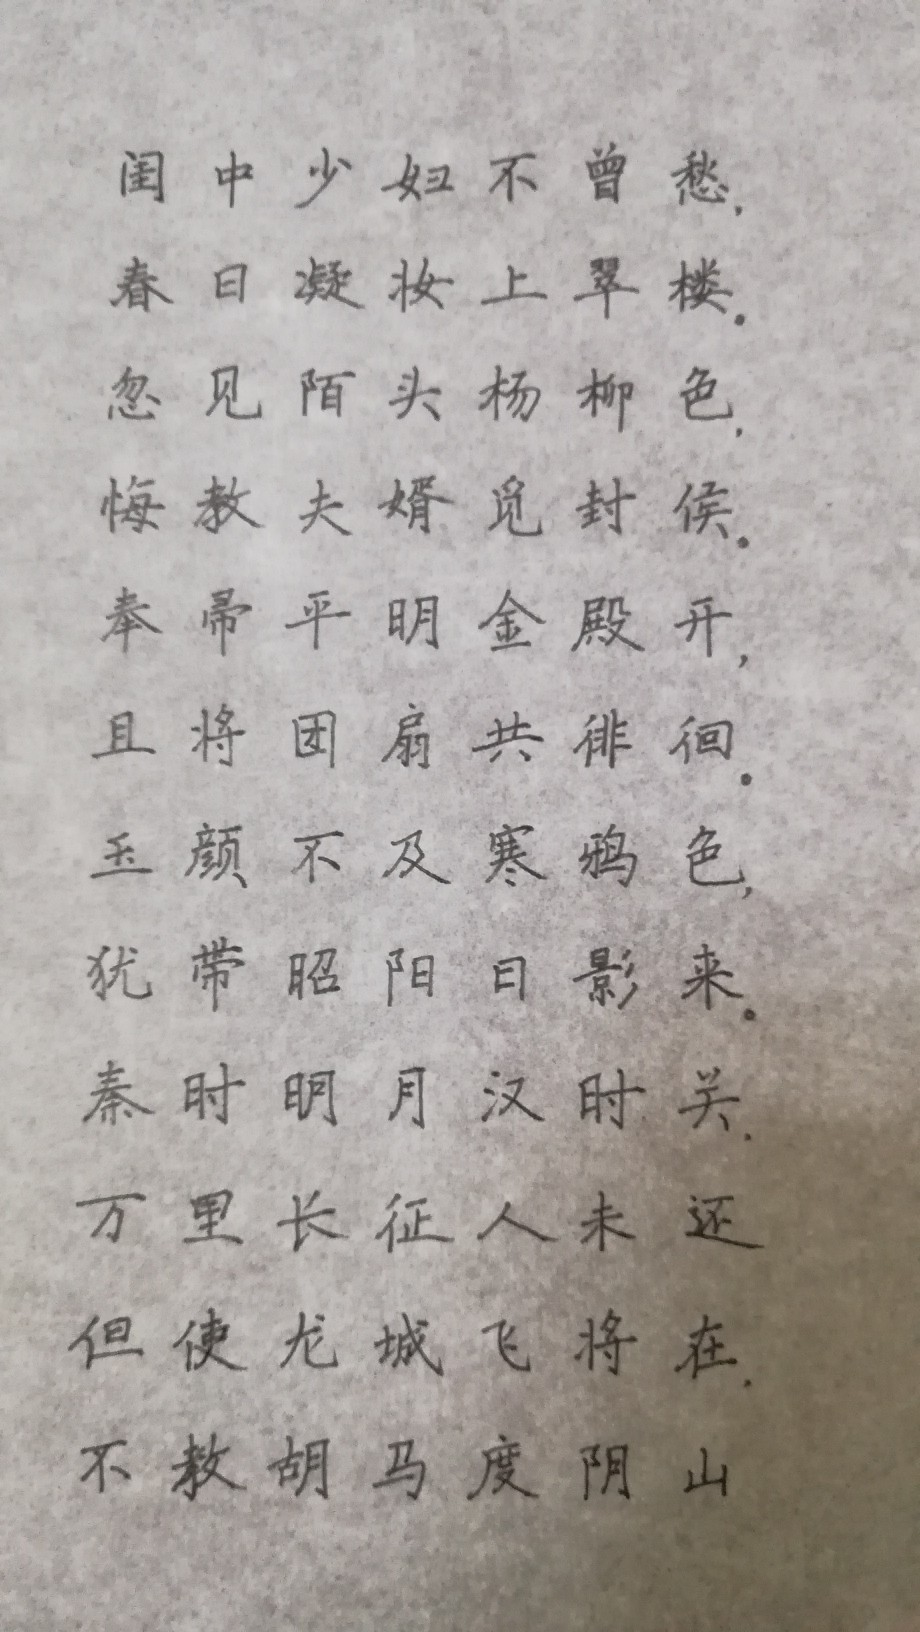 闺中少妇不曾愁,
春日凝妆上翠楼。
忽见陌头杨柳色,
悔教夫婿觅封侯。
奉帚平明金殿开,
且将团扇共徘徊。
玉颜不及寒鸦色,
犹带昭阳日影来。
秦时明月汉时关,
万里长征人未还
但使龙城飞将在,
不教胡马度阴山